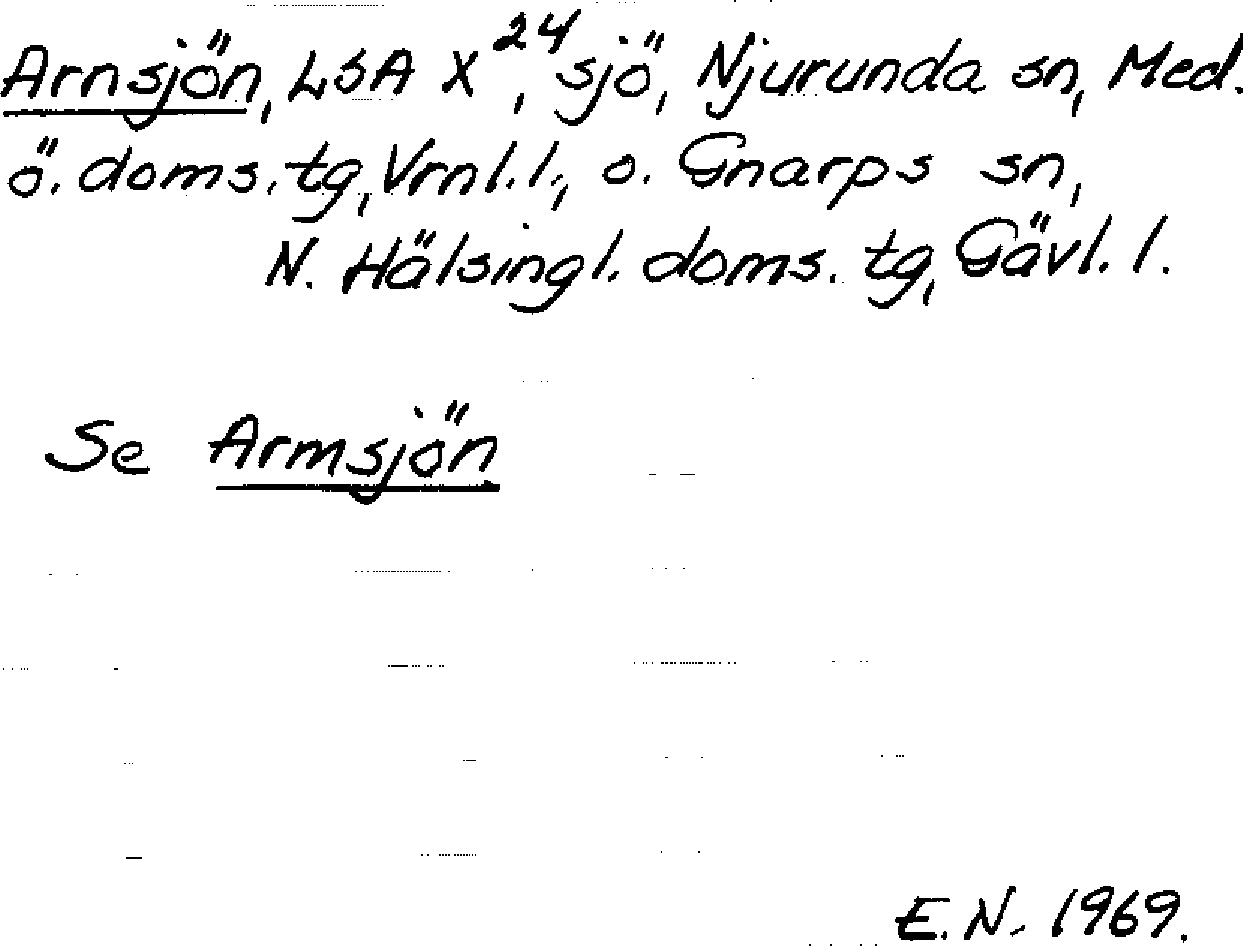 Arnsjön, LSA X²⁴, sjö, Njurunda sn, Med.
ö. doms. tg, Vrnl. l., o. Gnarps sn,
N. Hälsingl. doms. tg, Gävl. l.
Se Armsjön
E.N. 1969.